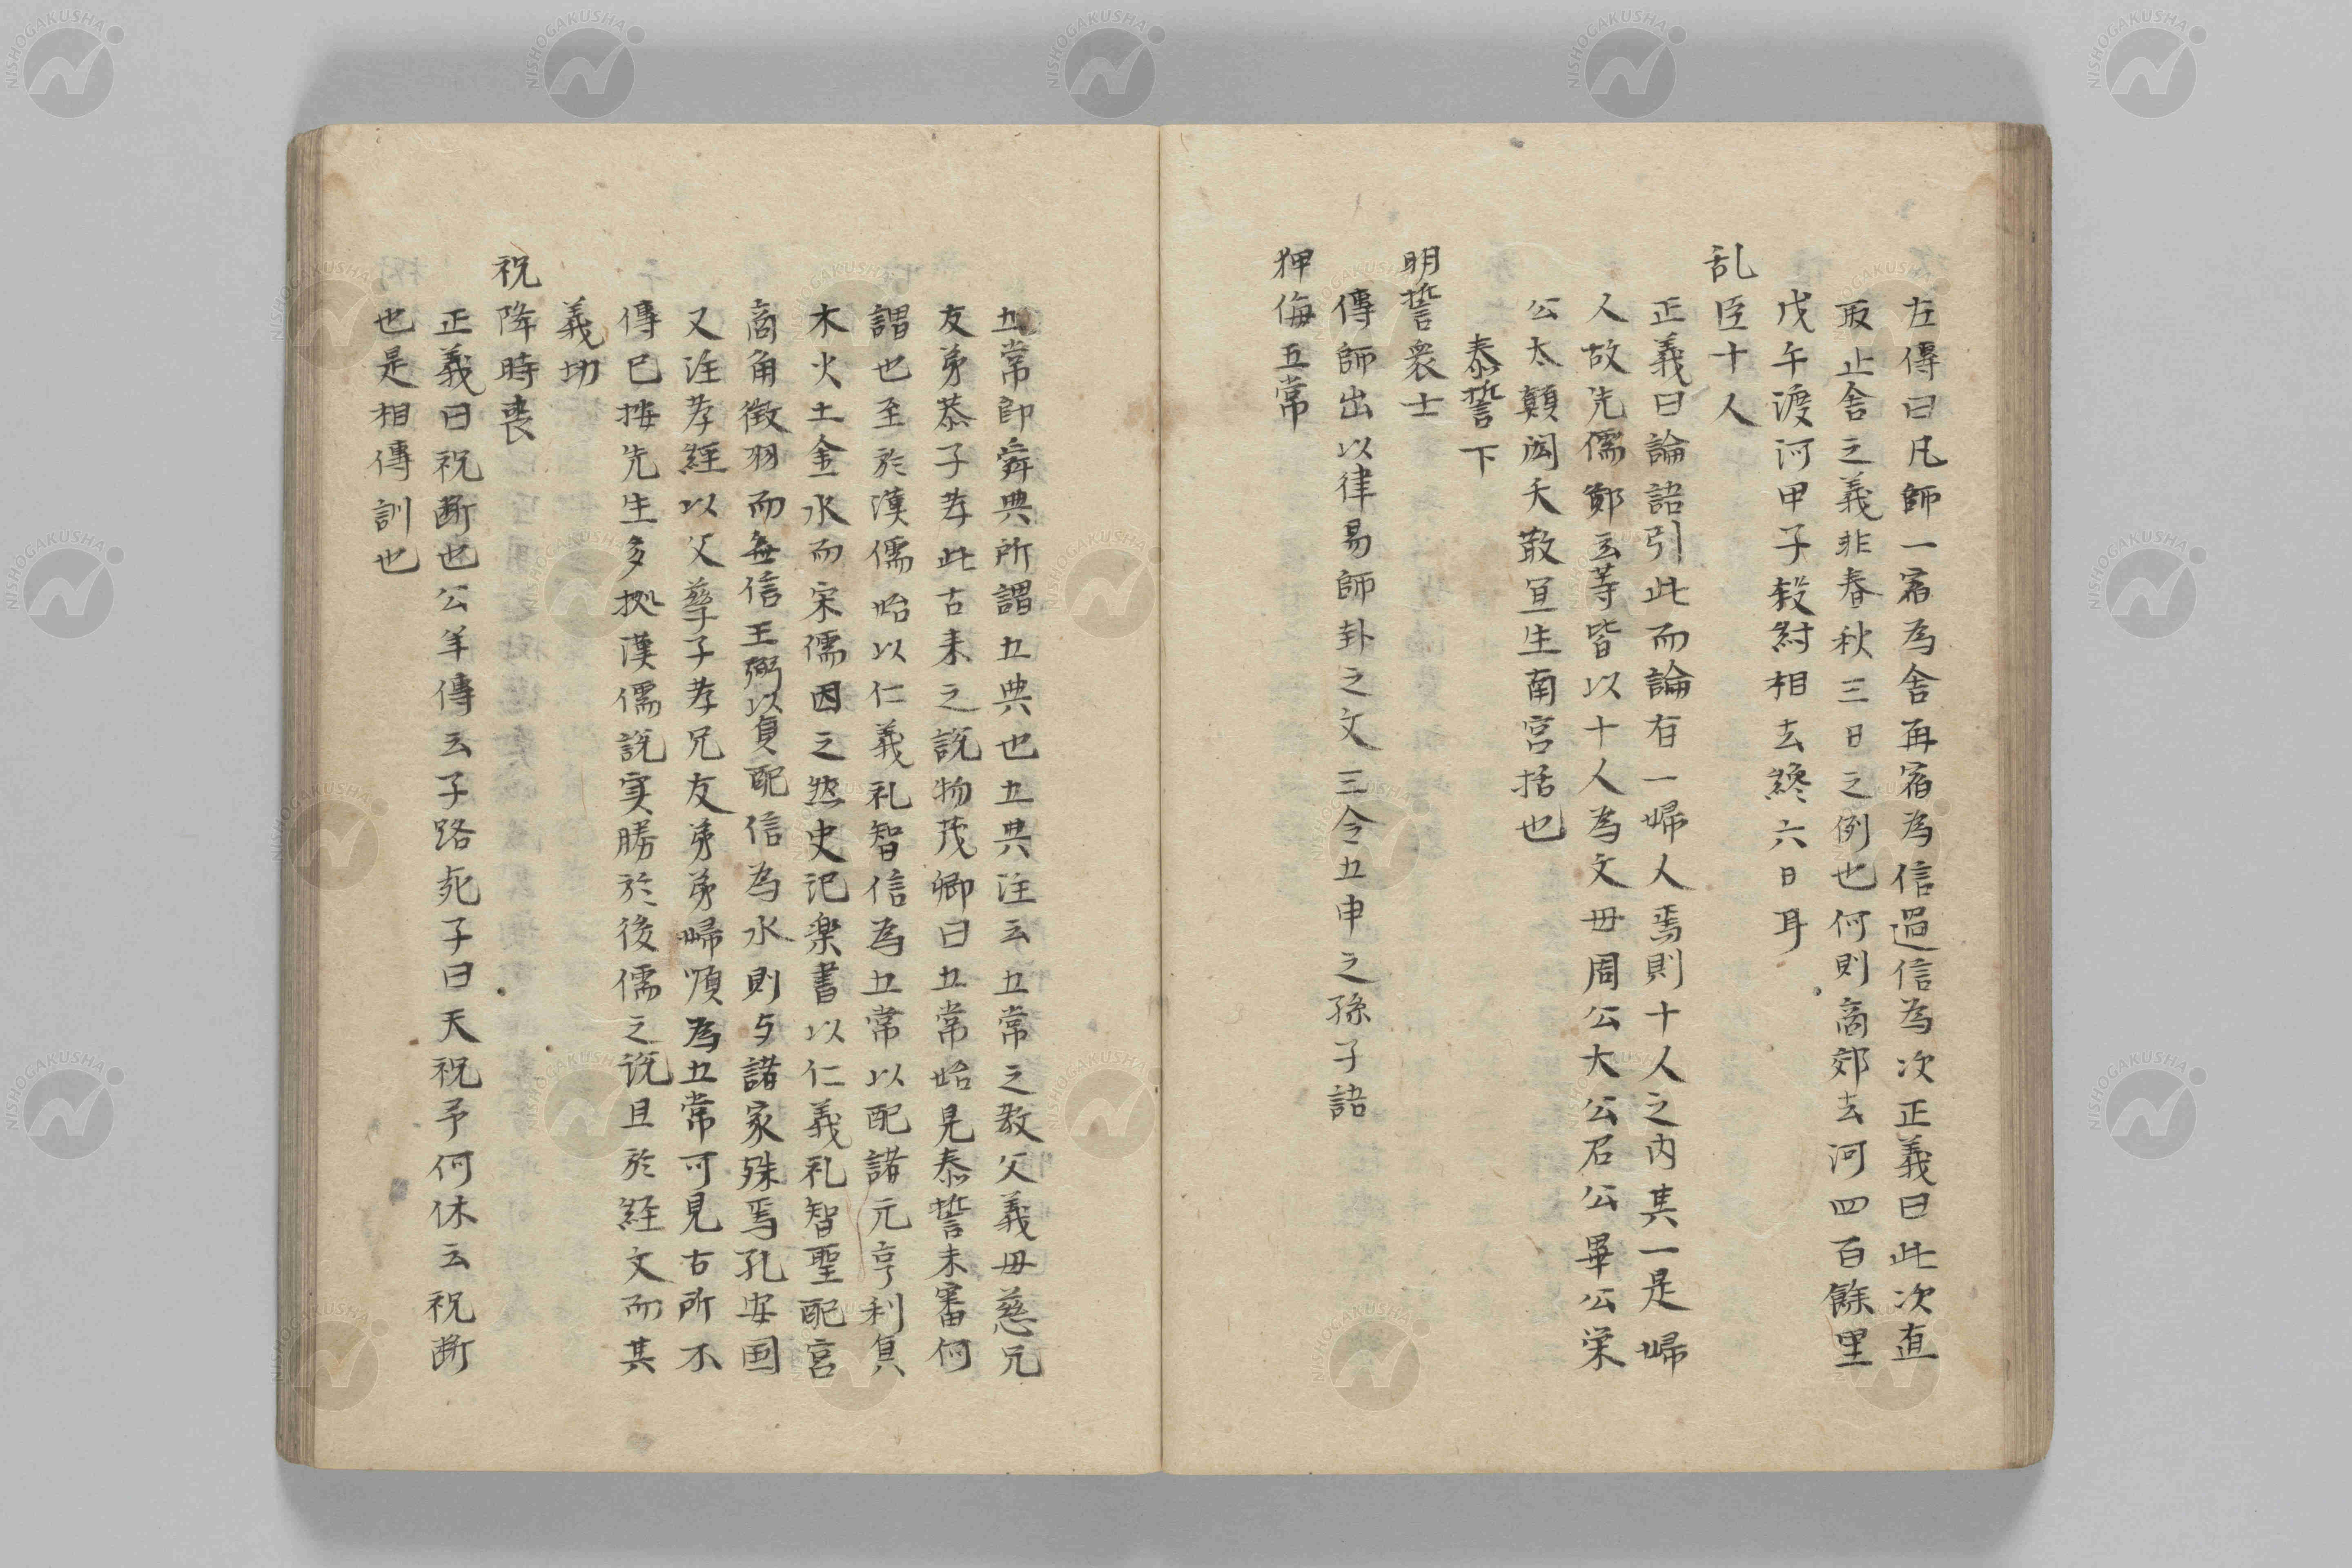 左傳曰凡師一宿為舍再宿為信過信為次正義曰此次直
取止舍之義非春秋三日之例也何則商郊去河四百餘里
戊午渡河甲子殺紂相去纔六日耳
乱臣十人
正義曰論語引此而論有一婦人焉則十人之内其一是婦
人故先儒鄭玄等皆以十人為文毋周公大公召公畢公栄
公太顛閎夭散宜生南宮括也
泰誓下
明誓衆士
傳師出以律易師卦之文三令五申之孫子語
狎侮五常
五常即舜典所謂五典也五典注云五常之教父義毋慈兄
友弟恭子孝此古来之説物茂卿曰五常始見泰誓未審何
謂也至於漢儒始以仁義礼智信為五常以配諸元亨利貞
木火土金水而宋儒因之然史記楽書以仁義礼智聖配宮
商角徴羽而無信王弼以貞配信為水則与諸家殊焉孔安国
又注孝経以父慈子孝兄友弟弟婦順為五常可見古所不
傳已按先生多拠漢儒説実勝於後儒之説且於経文而其
義切
祝降時喪
正義曰祝断也公羊傳云子路死子曰天祝予何休云祝断
也是相傳訓也
NISHOGAKUSHA